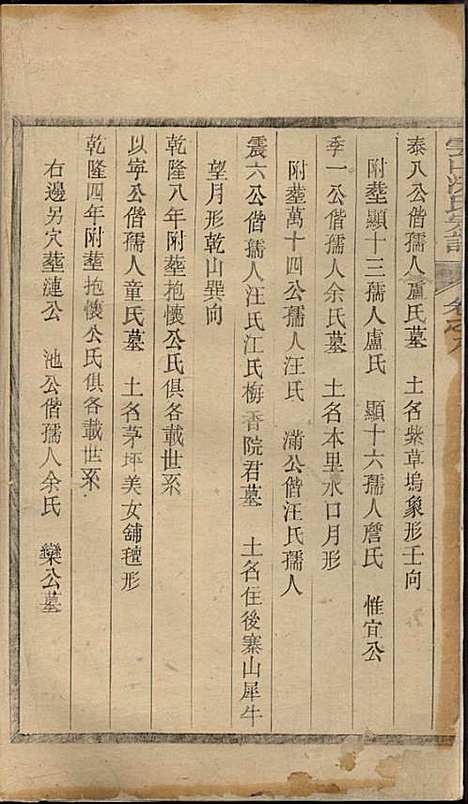 泰八公偕孺人盧氏墓　土名紫草塢象形壬向
附塟顯十三孺人盧氏　顯十六孺人詹氏　惟宜公
季一公偕孺人余氏墓　土名本里水口月形
附塟萬十四公孺人汪氏　滿公偕汪氏孺人
震六公偕孺人汪氏江氏梅香院君墓　土名住後寨山犀牛
望月形乾山巽向
乾隆八年附塟抱懷公氏俱各載世系
以寧公偕孺人童氏墓　土名茅坪美女舖氊形
乾隆四年附塟抱懷公氏俱各載世系
右邊另穴塟漣公　池公偕孺人余氏　欒公墓